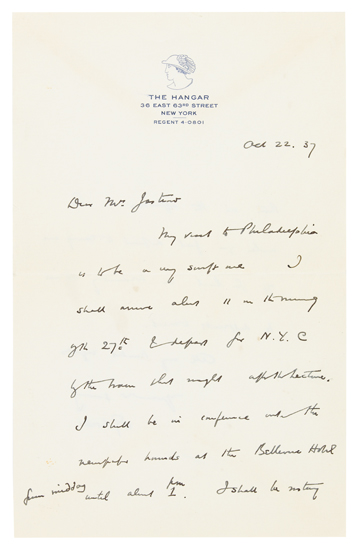 THE HANGAR
36 EAST 63RD STREET
NEW YORK
REGENT 4-0801
Oct 22. 37
Dear Mrs
My visit to Philadelphia
is to be a very swift one I
shall arrive about 11 in the morning
of the 27th & depart for N.Y.C
by the train that night after the lecture.
I shall be in conference with the
newspaper hounds at the Bellevue Hotel
from midday until about 1. pm I shall be